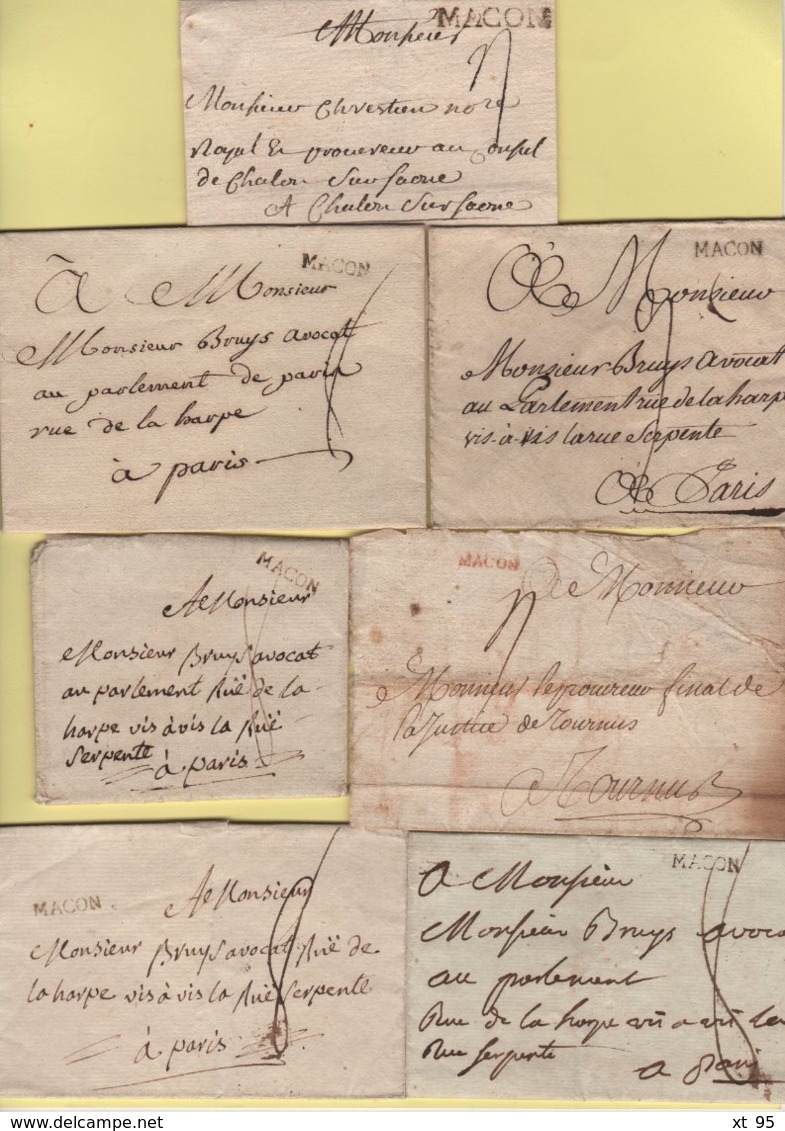 MACON
Monsieur
Monsieur Chrestien notre
Royal Et procureur au Consul
de Chalon Sur Saone
A Chalon Sur Saone
MACON
à Monsieur
Monsieur Bruys avocat
au parlement de paris
rue de la harpe
à paris
MACON
A Monsieur
Monsieur Bruys avocat
au Parlement rue de la harpe
vis-à-vis la rue Serpente
A Paris
MACON
A Monsieur
Monsieur Bruys avocat
au parlement Ruë de la
harpe vis à vis la Ruë
Serpente à paris
MACON
A Monsieur
Monsieur le procureur fiscal de
la Justice de Tournus
A Tournus
MACON
A Monsieur
Monsieur Bruys avocat Ruë de
la harpe vis à vis la Ruë Serpente
à paris
MACON
A Monsieur
Monsieur Bruys avocat
au parlement
Rue de la harpe vis a vis la
Rue Serpente
a Paris
www.delcampe.net
xt_95